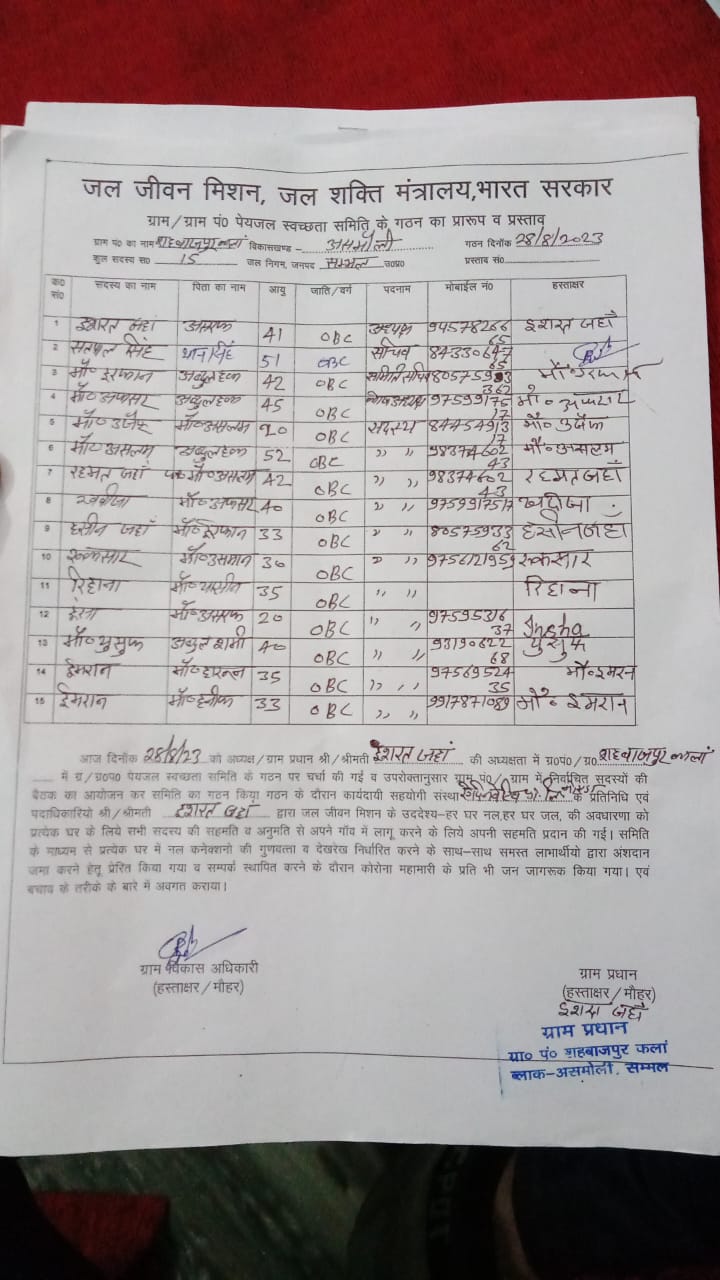 जल जीवन मिशन, जल शक्ति मंत्रालय,भारत सरकार
ग्राम/ग्राम पं० पेयजल स्वच्छता समिति के गठन का प्रारूप व प्रस्ताव
ग्राम पं० का नाम शहबाजपुर कलां विकासखण्ड – असमोली गठन दिनॉक 28/8/2023
कुल सदस्य स० 15 जल निगम, जनपद सम्भल उ०प्र० प्रस्ताव सं०
क० सं० सदस्य का नाम पिता का नाम आयु जाति/वर्ग पदनाम मोबाईल नं० हस्ताक्षर
1 इशरत जहां असरफ 41 OBC अध्यक्ष 9457826665 इशरत जहाँ
2 सतपाल सिंह थान सिंह 51 OBC सचिव 8433064765
3 मौ० इरफान अब्दुल हक 42 OBC 8057593362
4 मौ० अफसर अब्दुल हक 45 OBC 9759917517 मौ० अफसर
5 मौ० उजैफ मौ० असलम 20 OBC सदस्य 8445491317 मौ० उजैफ
6 मौ० असलम अब्दुल हक 52 OBC ,, ,, 9837460243 मौ० असलम
7 रहमत जहां मौ० असलम 42 OBC ,, ,, 9837460243 रहमत जहाँ
8 खदीजा मौ० अफसर 40 OBC ,, ,, 9759917517 खदीजा
9 हसीन जहां मौ० इरफान 33 OBC ,, ,, 8057593362 हसीन जहाँ
10 रूकसार मौ० उसमान 30 OBC ,, ,, 9756121959 रूकसार
11 रिहाना मौ० यासीन 35 OBC ,, ,, रिहाना
12 मौ० असरफ 20 OBC ,, ,, 9759531637 Insha
13 मौ० युसुफ अब्दुल शमी 40 OBC ,, ,, 9319062268 युसुफ
14 ईमरान 35 OBC ,, ,, 9756952435 मौ० इमरान
15 ईमरान मौ० हनीफ 33 OBC ,, ,, 9917871089 मौ० इमरान
आज दिनॉक 28/8/23 को अध्यक्ष/ग्राम प्रधान श्री/श्रीमती ईशरत जहां की अध्यक्षता में ग्र०पं०/ग्र० शहबाजपुर कलां
में ग्र/ग्र०प० पेयजल स्वच्छता समिति के गठन पर चर्चा की गई व उपरोक्तानुसार ग्राम पं०/ग्राम में निर्वाचित सदस्यों की
बैठक का आयोजन कर समिति का गठन किया गठन के दौरान कार्यदायी सहयोगी संस्था के प्रतिनिधि एवं
पदाधिकारियो श्री/श्रीमती ईशरत जहां द्वारा जल जीवन मिशन के उददेश्य–हर घर नल,हर घर जल, की अवधारणा को
प्रत्येक घर के लिये सभी सदस्य की सहमति व अनुमति से अपने गाँव में लागू करने के लिये अपनी सहमति प्रदान की गई। समिति
के माध्यम से प्रत्येक घर में नल कनेक्शनो की गुणवत्ता व देखरेख निर्धारित करने के साथ–साथ समस्त लाभार्थीयो द्वारा अंशदान
जमा करने हेतू प्रेरित किया गया व सम्पर्क स्थापित करने के दौरान कोरोना महामारी के प्रति भी जन जागरूक किया गया। एवं
बचाव के तरीके के बारे में अवगत कराया।
ग्राम विकास अधिकारी
(हस्ताक्षर/मौहर)
ग्राम प्रधान
(हस्ताक्षर/मौहर)
इशरत जहाँ
ग्राम प्रधान
ग्रा० पं० शहबाजपुर कलां
ब्लाक–असमोली, सम्भल